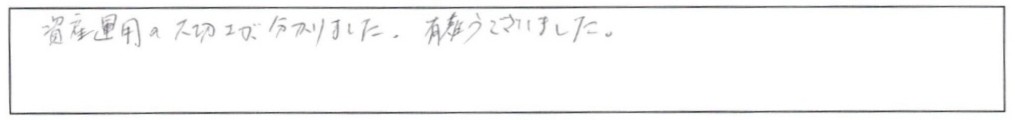 資産運用の大切さが分かりました。有難うございました。